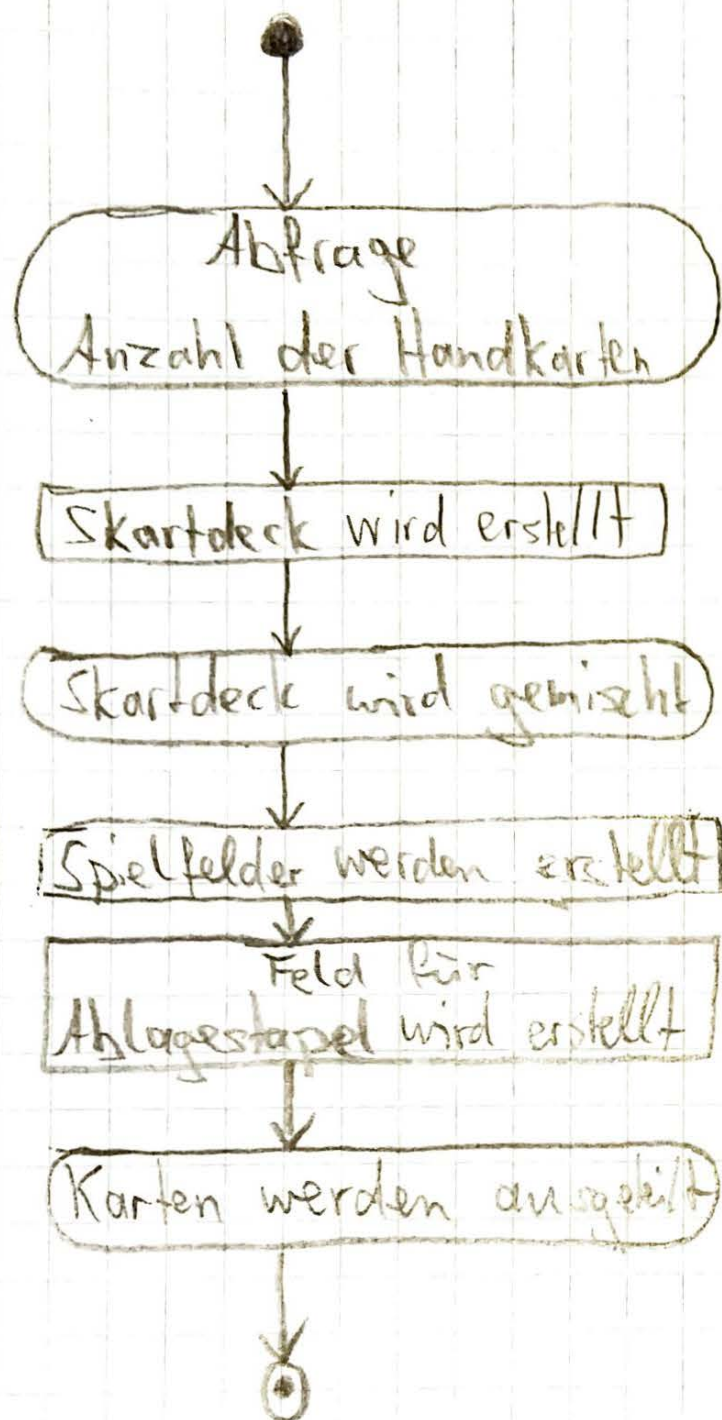 Abfrage
Anzahl der Handkarten
Skartdeck wird erstellt
Skartdeck wird gemischt
Spielfelder werden erstellt
Feld für
Ablagestapel wird erstellt
Karten werden ausgeteilt